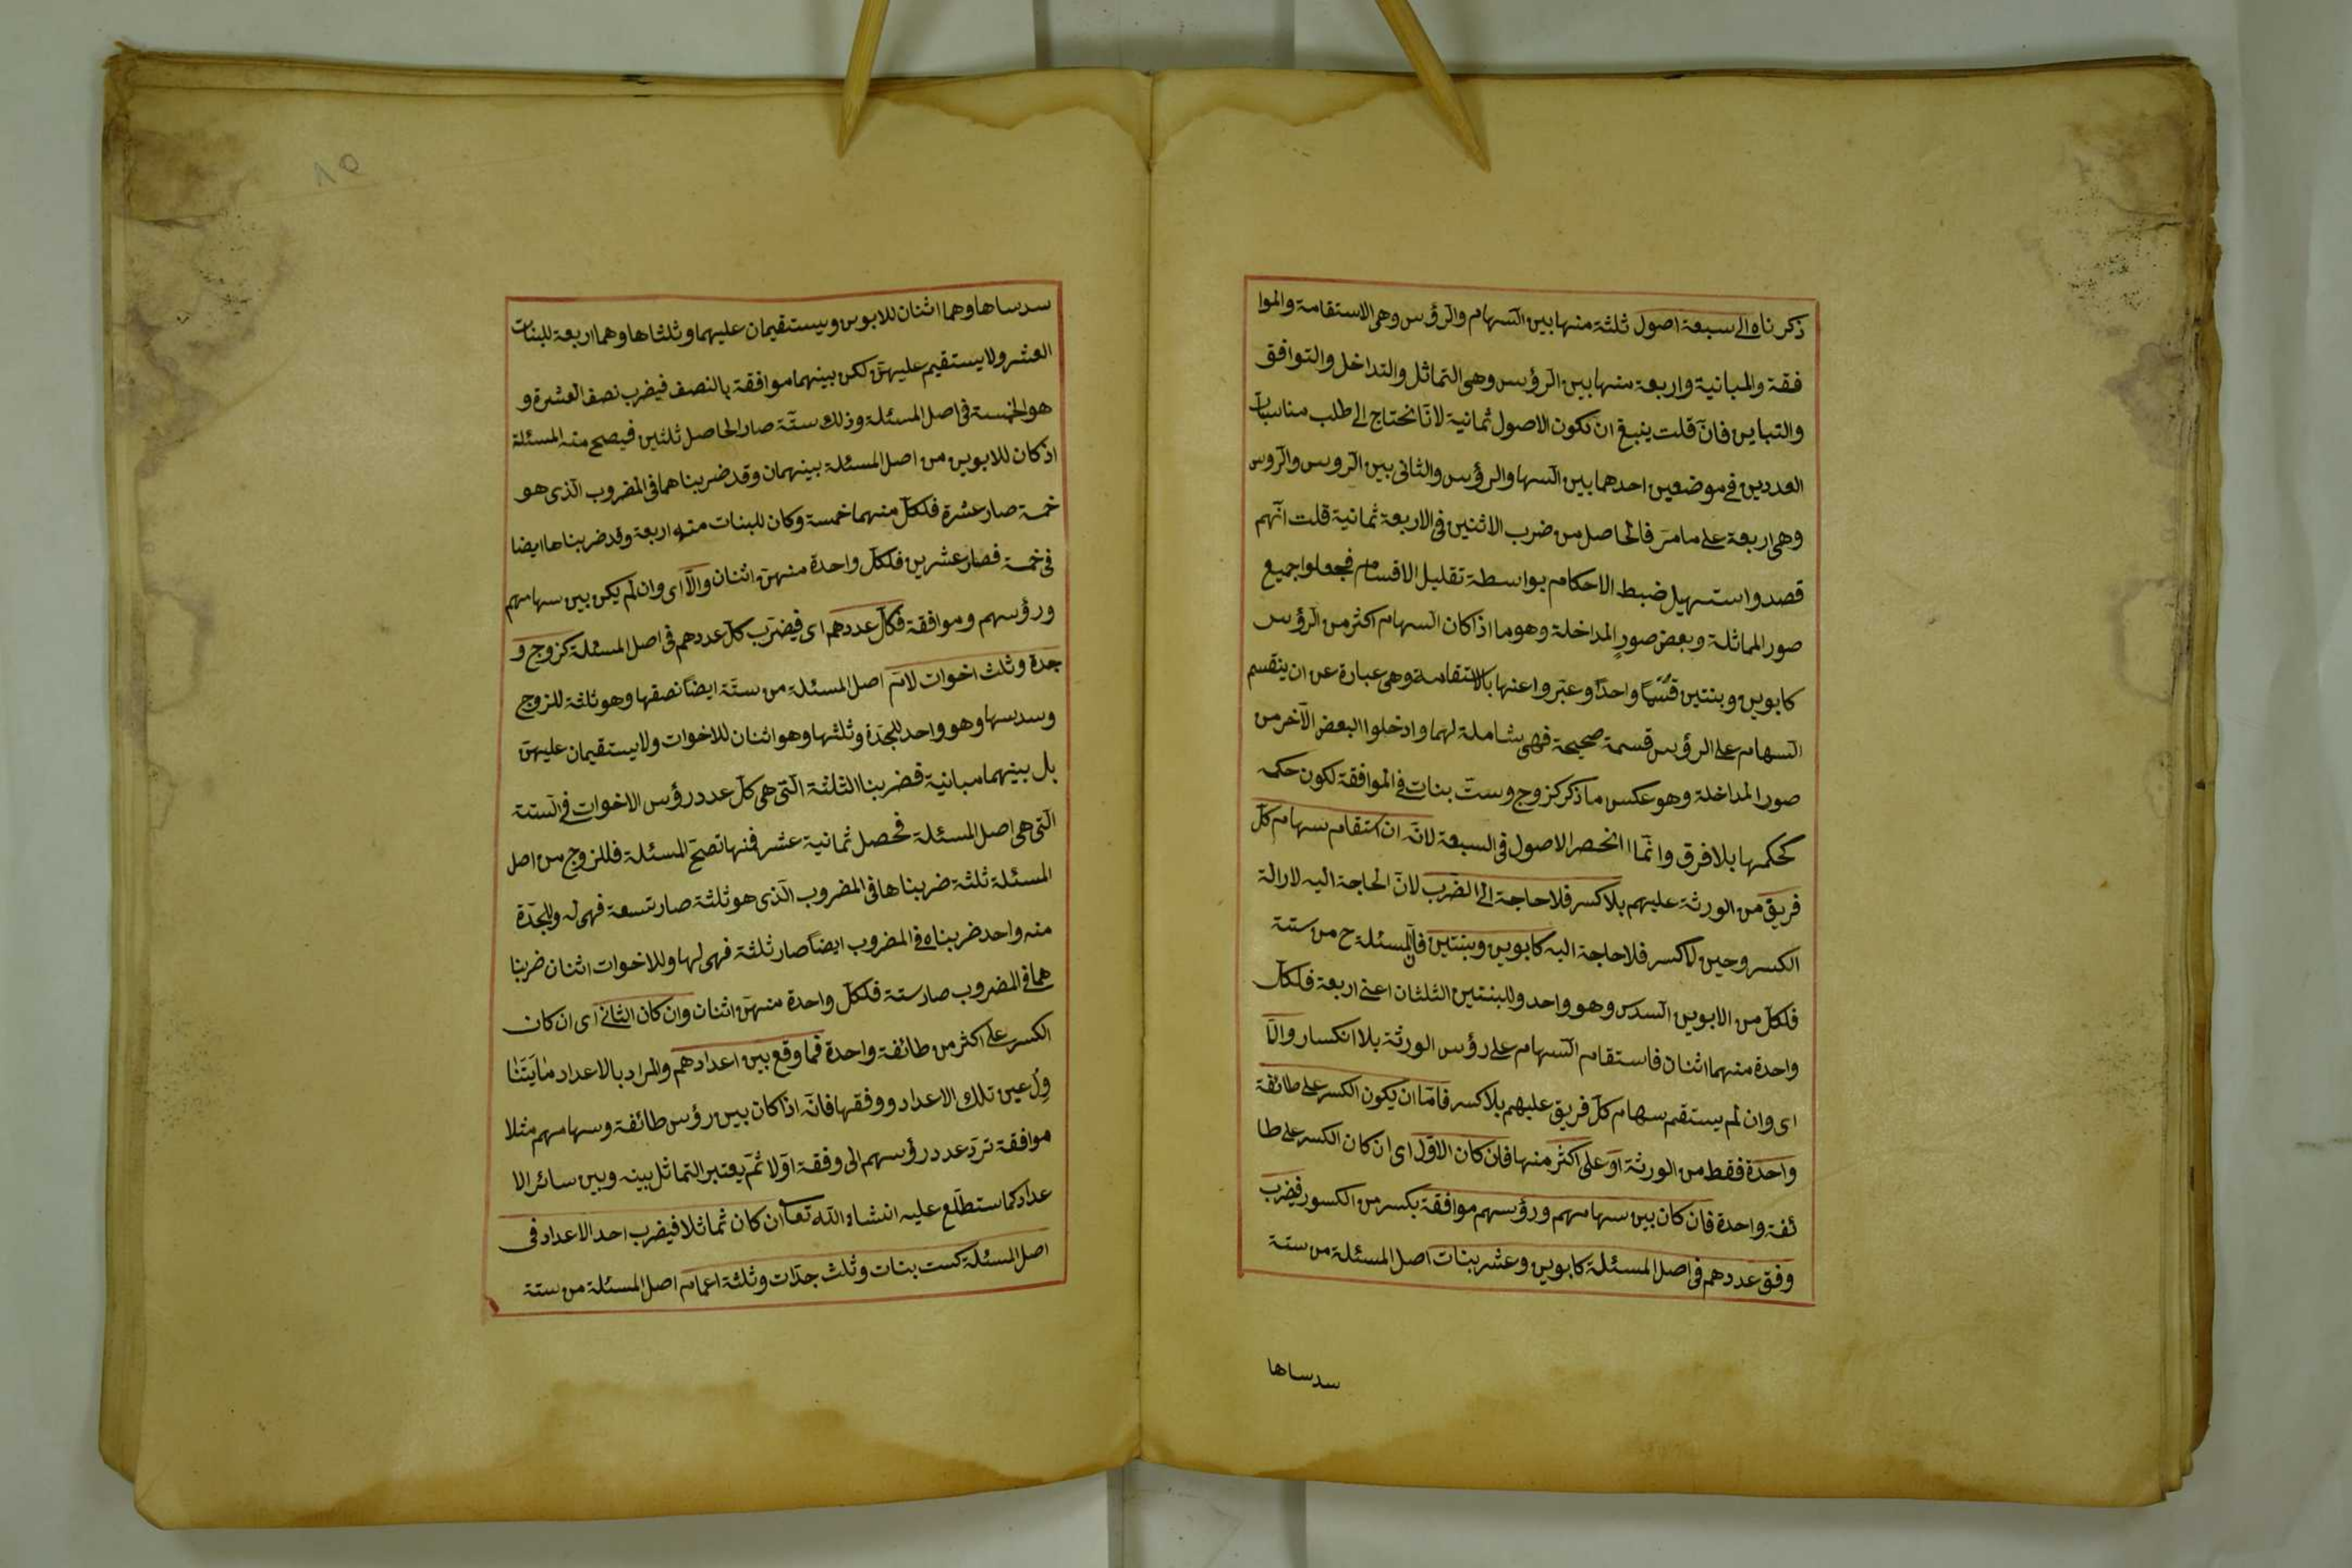 ذكرناه الى سبعة اصول ثلثة منها بين السهام والرؤس وهى الاستقامة والموا
فقة والمباينة واربعة منها بين الرؤس وهى التماثل والتداخل والتوافق
والتباين فان قلت ينبغى ان تكون الاصول ثمانية لانا نحتاج الى طلب مناسبات
العددين فى موضعين احدهما بين السها والرؤس والثانى بين الروس والروس
وهى اربعة على ما مر فالحاصل من ضرب الاثنين فى الاربعة ثمانية قلت انهم
قصدوا تسهيل ضبط الاحكام بواسطة تقليل الاقسام فجعلوا جميع
صور المماثلة وبعض صور المداخلة وهو ما اذا كان السهام اكثر من الرؤس
كابوين وبنتين قسما واحدا وعبروا عنها بالاستقامة وهى عبارة عن ان ينقسم
السهام على الرؤس قسمة صحيحة فهى شاملة لهما وادخلوا البعض الآخر من
صور المداخلة وهو عكس ما ذكر كزوج وست بنات فى الموافقة لكون حكمه
كحكمها بلا فرق وانما انحصر الاصول فى السبعة لانه ان استقام سهام كل
فريق من الورثة عليهم بلا كسر فلا حاجة الى الضرب لان الحاجة اليه لازالة
الكسر وحين لا كسر فلا حاجة اليه كابوين وبنتين فان المسئلة ح من ستة
فلكل من الابوين السدس وهو واحد وللبنتين الثلثان اعنى اربعة فلكل
واحدة منهما اثنان فاستقام السهام على رؤس الورثة بلا انكسار والا
اى وان لم يستقم سهام كل فريق عليهم بلا كسر فاما ان يكون الكسر على طائفة
واحدة فقط من الورثة او على اكثر منها فان كان الاول اى ان كان الكسر على طا
ئفة واحدة فان كان بين سهامهم ورؤسهم موافقة بكسر من الكسور فيضرب
وفق عددهم فى اصل المسئلة كابوين وعشر بنات اصل المسئلة من ستة
سدساها
٨٥
سدساها وهما اثنان للابوين ويستقيمان عليهما وثلثاها وهما اربعة للبنات
العشر ولا يستقيم عليهن لكن بينهما موافقة بالنصف فيضرب نصف العشرة و
هو الخمسة فى اصل المسئلة وذلك ستة صار الحاصل ثلثين فيصح منه المسئلة
اذ كان للابوين من اصل المسئلة بينهمان وقد ضربناهما فى المضروب الذى هو
خمسة صار عشرة فلكل منهما خمسة وكان للبنات منه اربعة وقد ضربناها ايضا
فى خمسة فصار عشرين فلكل واحدة منهن اثنان والا اى وان لم يكن بين سهامهم
ورؤسهم وموافقة فكل عددهم اى فيضرب كل عددهم فى اصل المسئلة كزوج و
جدة وثلث اخوات لام اصل المسئلة من ستة ايضا نصفها وهو ثلثة للزوج
وسدسها وهو واحد للجدة وثلثها وهو اثنان للاخوات ولا يستقيمان عليهن
بل بينهما مباينة فضربنا الثلثة التى هى كل عدد رؤس الاخوات فى الستة
التى هى اصل المسئلة فحصل ثمانية عشر فمنها تصح المسئلة فللزوج من اصل
المسئلة ثلثة ضربناها فى المضروب الذى هو ثلثة صار تسعة فهى له وللجدة
منه واحد ضربناه فى المضروب ايضا صار ثلثة فهى لها وللاخوات اثنان ضربنا
هما فى المضروب صار ستة فلكل واحدة منهن اثنان وان كان الثانى اى ان كان
الكسر على اكثر من طائفة واحدة فما وقع بين اعدادهم والمراد بالاعداد ما يتنا
ول عين تلك الاعداد ووفقها فانه اذا كان بين رؤس طائفة وسهامهم مثلا
موافقة ترد عدد رؤسهم الى وفقة اولا ثم يعتبر التماثل بينه وبين سائر الا
عداد كما ستطلع عليه انشاء الله تعا ان كان تماثلا فيضرب احد الاعداد فى
اصل المسئلة كست بنات وثلث جدات وثلثة اعمام اصل المسئلة من ستة